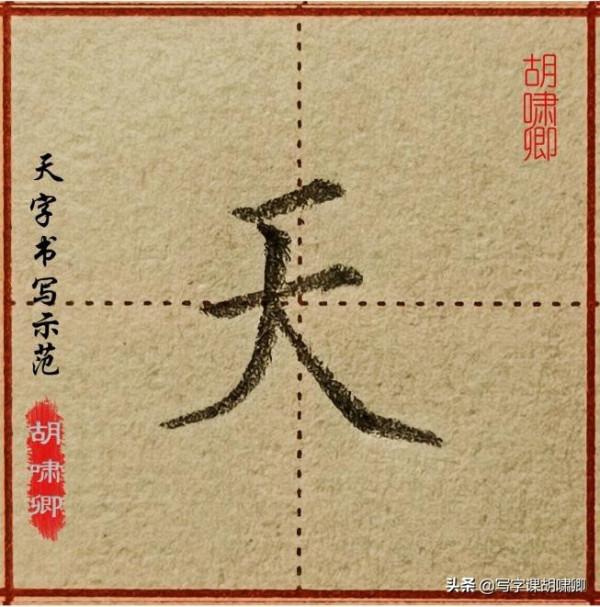 天字书写示范
胡啸卿
天
胡啸卿
头条 @写字课胡啸卿